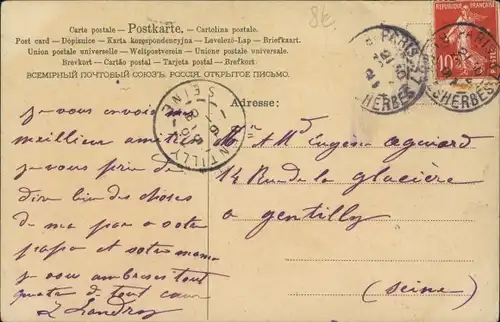 Carte postale - Postkarte. - Cartolina postale.
Post card - Dopisnice - Karta korespondencyjna - Levelező-Lap - Briefkaart.
Union postale universelle - Weltpostverein - Unione postale universale.
Brevkort - Cartão postal - Tarjeta postal - Brefkort.
ВСЕМІРНЫЙ ПОЧТОВЫЙ СОЮЗЪ. РОССІЯ. ОТКРЫТОЕ ПИСЬМО.
REPUBLIQUE FRANÇAISE
10
PARIS
GENTILLY
SEINE
Adresse:
je vous envoie mes
meilleur amitiés
je vous prie de
dire bien des choses
de ma par a votre
papa et votre maman
je vous embrasse tous
quatre de tout cœur
L Landroy
M et Mme Eugène
14 Rue de la glacière
a gentilly
(Seine)